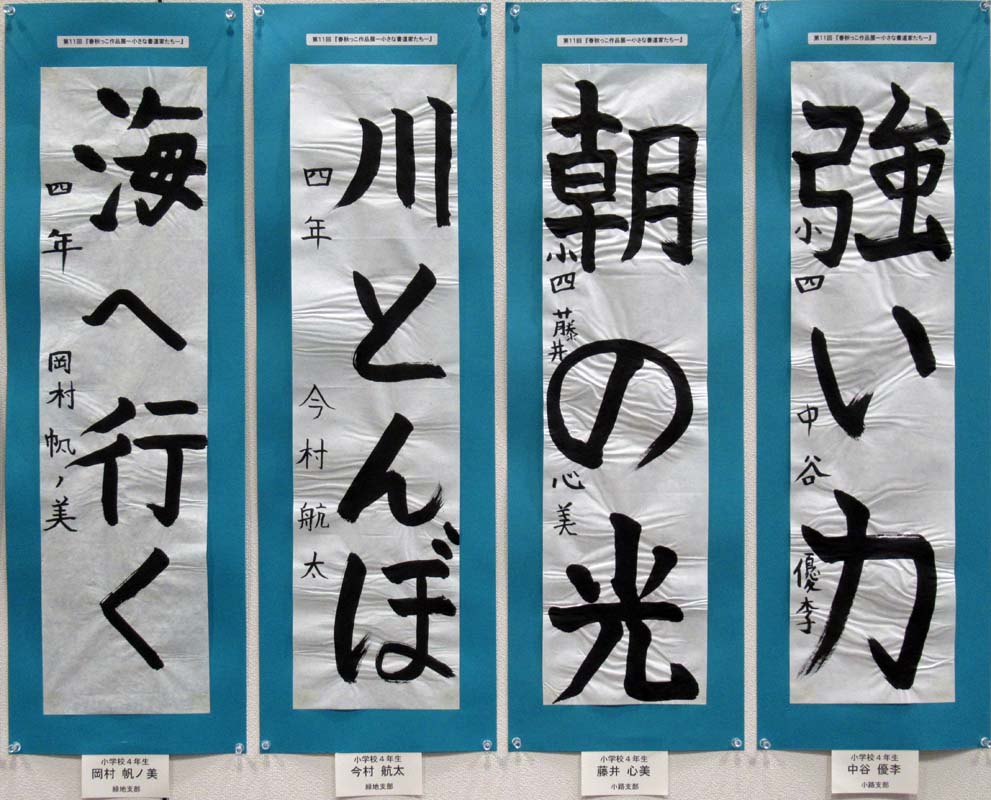 第11回『春秋っこ作品展ー小さな書道家たちー』
海へ行く
四年 岡村帆ノ美
小学校4年生
岡村 帆ノ美
緑地支部
第11回『春秋っこ作品展ー小さな書道家たちー』
川とんぼ
四年 今村航太
小学校4年生
今村 航太
緑地支部
第11回『春秋っこ作品展ー小さな書道家たちー』
朝の光
小四 藤井心美
小学校4年生
藤井 心美
小路支部
第11回『春秋っこ作品展ー小さな書道家たちー』
強い力
小四 中谷優李
小学校4年生
中谷 優李
小路支部